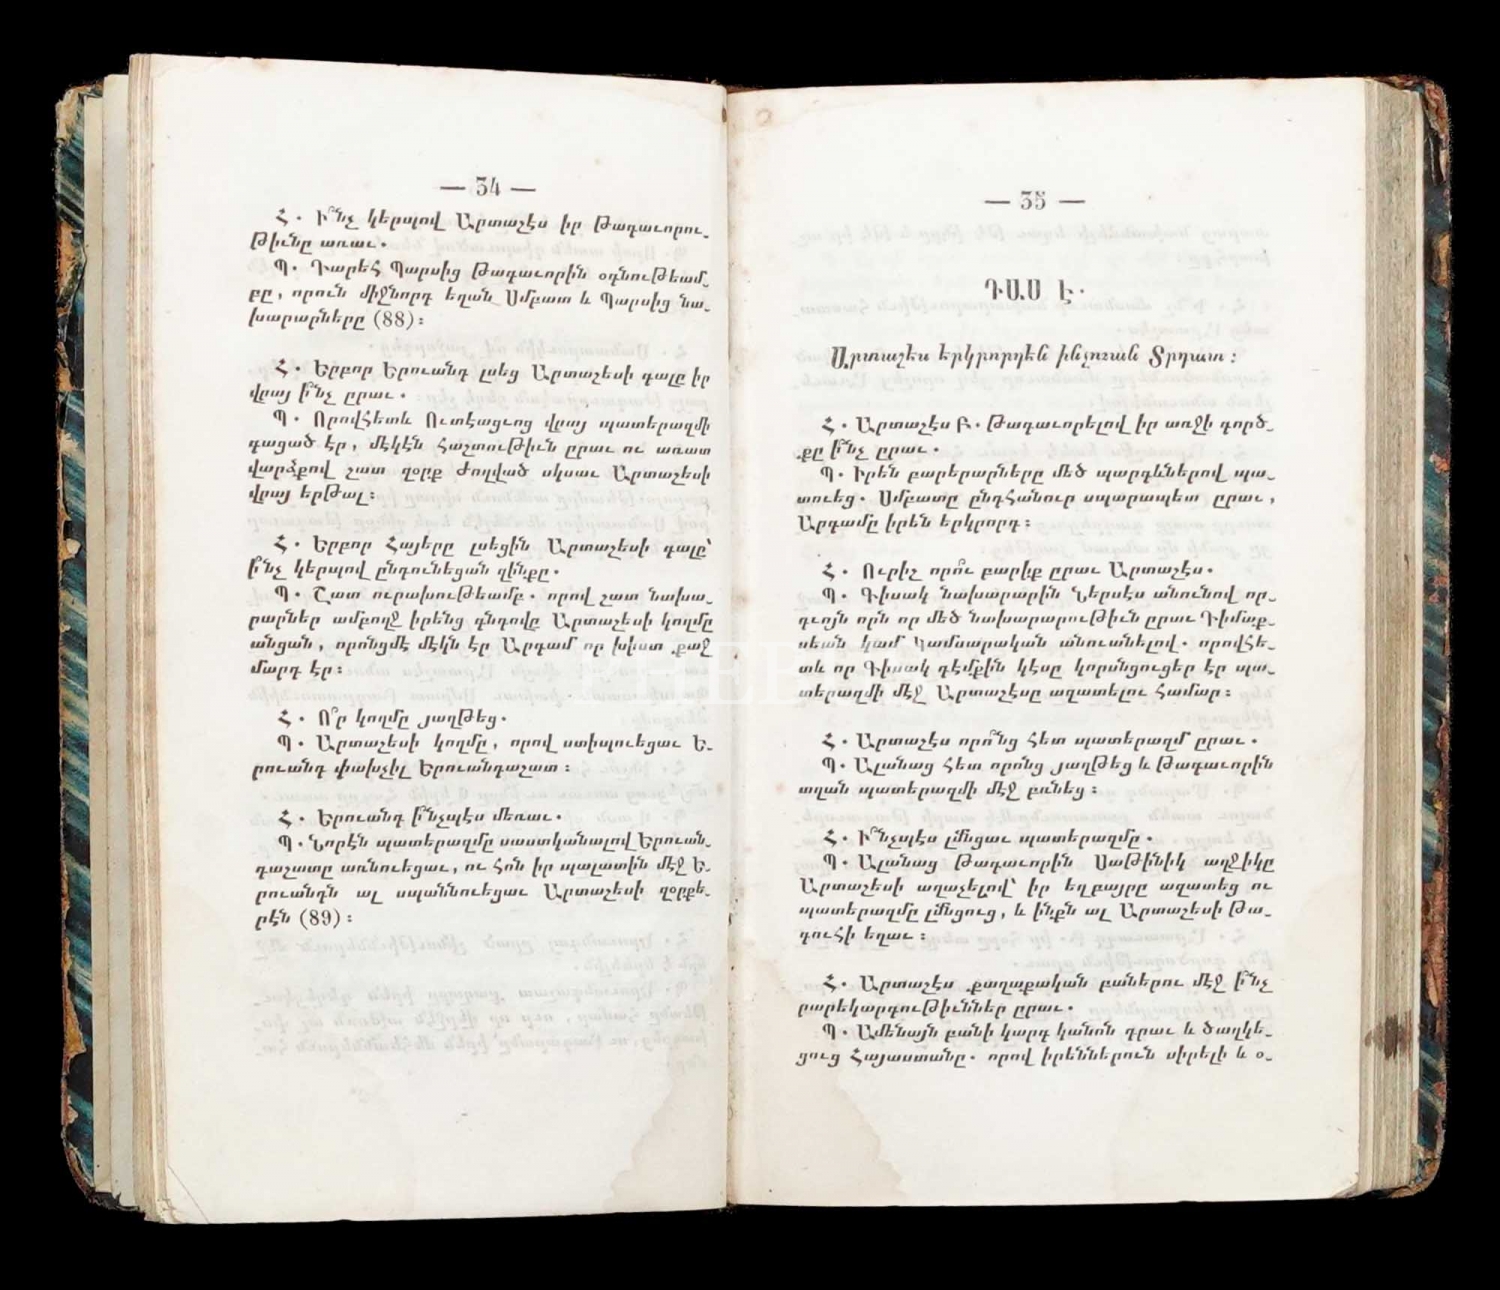 — 34 —
Հ. Ի՞նչ կերպով Արտաշէս իր թագաւորու-
թիւնը առաւ.
Պ. Դարեհ Պարսից թագաւորին օգնութեամ-
բը, որուն միջնորդ եղան Սմբատ և Պարսից նա-
խարարները (88)։
Հ. Երբոր Երուանդ լսեց Արտաշեսի գալը իր
վրայ ի՞նչ ըրաւ.
Պ. Որովհետև Ուտէացւոց վրայ պատերազմի
գացած էր, մէկէն հաշտութիւն ըրաւ ու առատ
վարձքով շատ զօրք ժողված սկսաւ Արտաշեսի
վրայ երթալ։
Հ. Երբոր Հայերը լսեցին Արտաշեսի գալը՝
ի՞նչ կերպով ընդունեցան զինքը.
Պ. Շատ ուրախութեամբ. որով շատ նախա-
րարներ ամբողջ իրենց գնդովը Արտաշեսի կողմը
անցան, որոնցմէ մէկն էր Արգամ որ խիստ քաջ
մարդ էր։
Հ. Ո՞ր կողմը յաղթեց.
Պ. Արտաշեսի կողմը, որով ստիպուեցաւ Ե-
րուանդ փախչիլ Երուանդաշատ։
Հ. Երուանդ ի՞նչպէս մեռաւ.
Պ. Նորէն պատերազմը սաստկանալով Երուան-
դաշատը առնուեցաւ, ու հոն իր պալատին մէջ Ե-
րուանդն ալ սպաննուեցաւ Արտաշեսի զօրքե-
րէն (89)։
— 35 —
ԴԱՍ Է.
Արտաշես երկրորդէն ինչուան Տրդատ։
Հ. Արտաշէս Բ. թագաւորելով իր առջի գործ-
քը ի՞նչ ըրաւ.
Պ. Իրեն բարերարները մեծ պարգևներով պա-
տուեց. Սմբատը ընդհանուր սպարապետ ըրաւ,
Արգամը իրեն երկրորդ։
Հ. Ուրիշ որո՞ւ բարիք ըրաւ Արտաշէս.
Պ. Գիսակ նախարարին Ներսէս անունով որ-
դւոյն որն որ մեծ նախարարութիւն ըրաւ Դիմաք-
սեան կամ Կամսարական անուանելով. որովհե-
տև որ Գիսակ դէմքին կէսը կորսնցուցեր էր պա-
տերազմի մէջ Արտաշէսը ազատելու համար։
Հ. Արտաշէս որո՞նց հետ պատերազմ ըրաւ.
Պ. Ալանաց հետ որոնց յաղթեց և թագաւորին
տղան պատերազմի մէջ բռնեց։
Հ. Ի՞նչպէս լմնցաւ պատերազմը.
Պ. Ալանաց թագաւորին Սաթինիկ աղջիկը
Արտաշեսի աղաչելով՝ իր եղբայրը ազատեց ու
պատերազմը լմնցուց, և ինքն ալ Արտաշեսի թա-
գուհի եղաւ։
Հ. Արտաշէս քաղաքական բաներու մէջ ի՞նչ
բարեկարգութիւններ ըրաւ.
Պ. Ամենայն բանի կարգ կանոն դրաւ և ծաղկե-
ցուց Հայաստանը. որով իրեններուն սիրելի և օ-